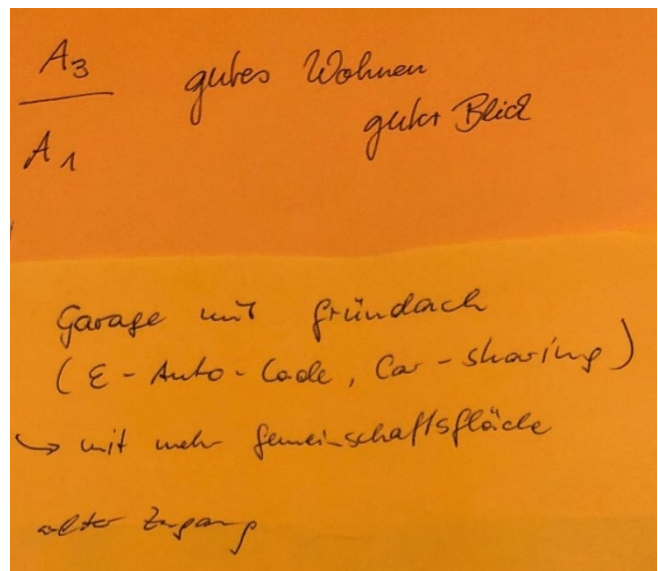 A3
gutes Wohnen
guter Blick
A1
Garage mit Gründach
(E-Auto-Lade, Car-sharing)
↳ mit mehr Gemeinschaftsfläche
alter Zugang